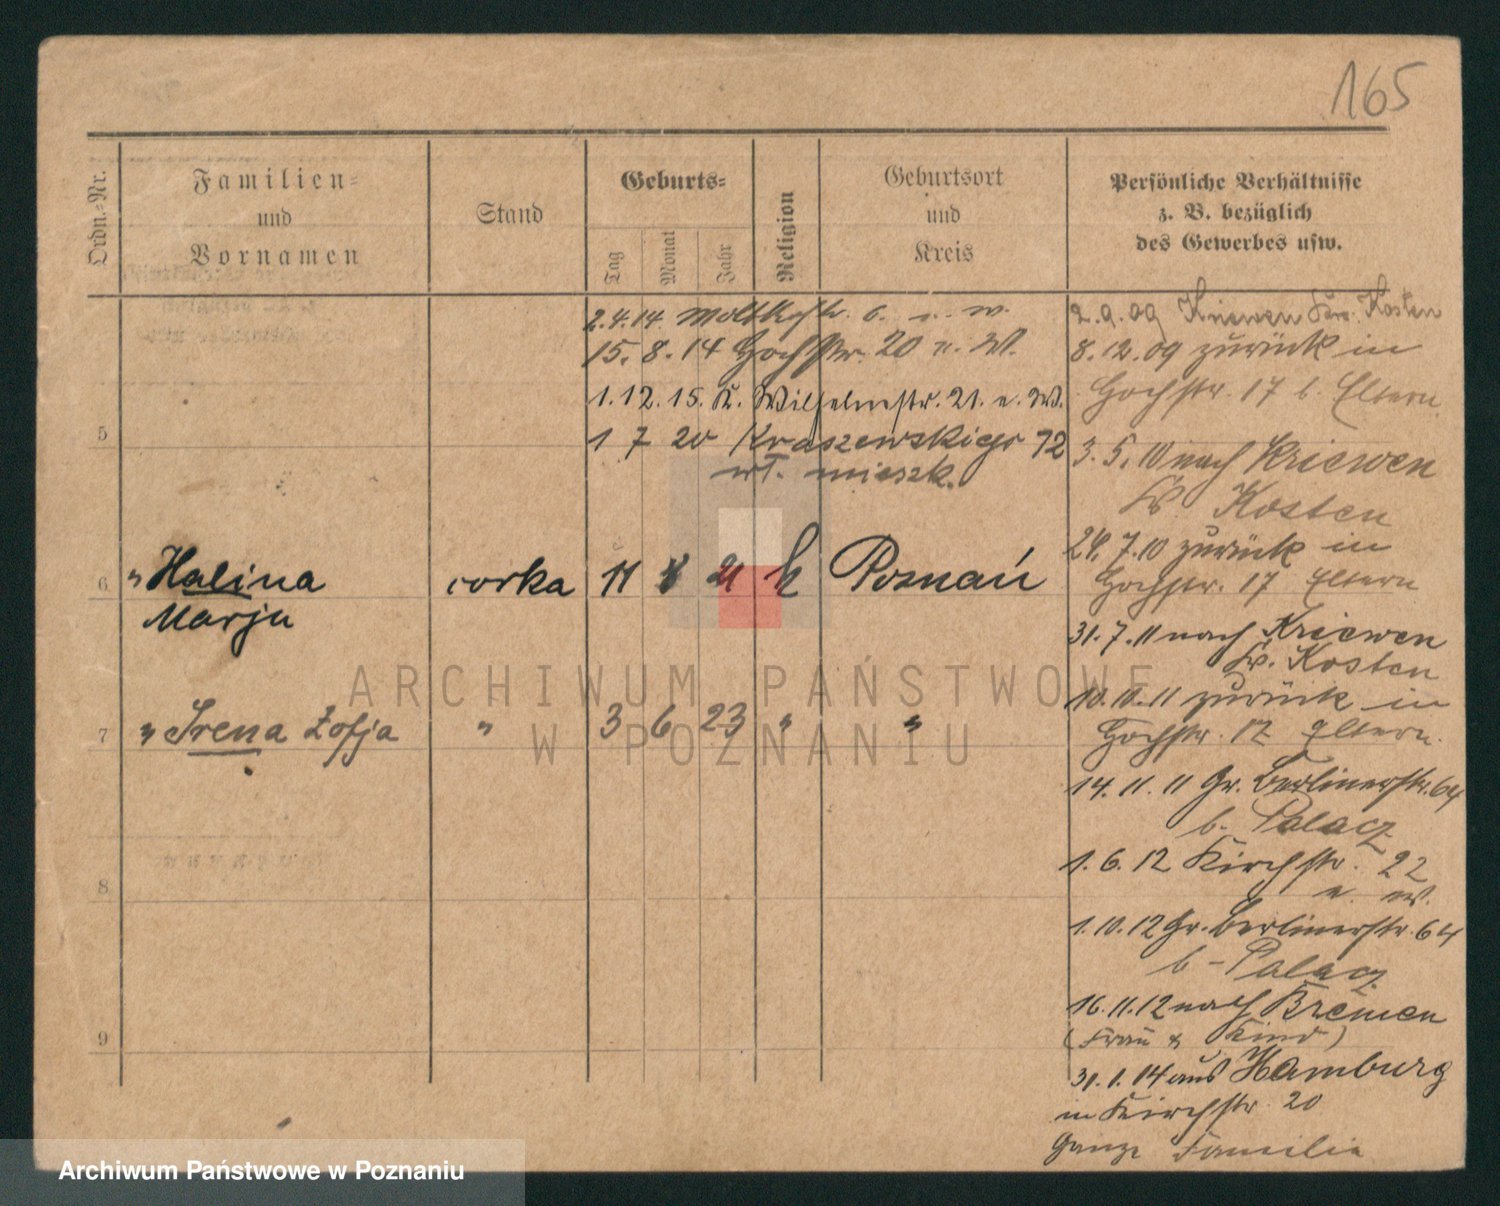 165
Ordn.-Nr.
Familien-
und
Vornamen
Stand
Geburts-
Tag
Monat
Jahr
Religion
Geburtsort
und
Kreis
Persönliche Verhältnisse
z. B. bezüglich
des Gewerbes usw.
2.4.14 Moltkestr. 6. u. W.
15.8.14 Hochstr. 20 u. W.
1.12.15. K. Wilhelmstr. 21. u. W.
5
1 7 20 Kraszewskiego 12
wł. mieszk.
6 " Halina córka 11 21 k Poznań
Marja
7 " Irena Zofja " 3 6 23 " "
8
9
2.9.09 Kriewen Krs. Kosten
8.12.09 zurück in
Hochstr. 17 b. Eltern.
3.5.10 nach Kriewen
Kr. Kosten
24.7.10 zurück in
Hochstr. 17 Eltern
31.7.11 nach Kriewen
Kr. Kosten
10.10.11 zurück in
Hochstr. 17 Eltern.
14.11.11 Gr. Berlinerstr. 64
b. Palacz
1.6.12 Kirchstr. 22
u. W.
1.10.12 Gr. Berlinerstr. 64
b. Palacz
16.11.12 nach Bremen
(Frau & Kind)
31.1.14 aus Hamburg
in Kirchstr. 20
ganze Familie
ARCHIWUM PAŃSTWOWE
W POZNANIU
Archiwum Państwowe w Poznaniu